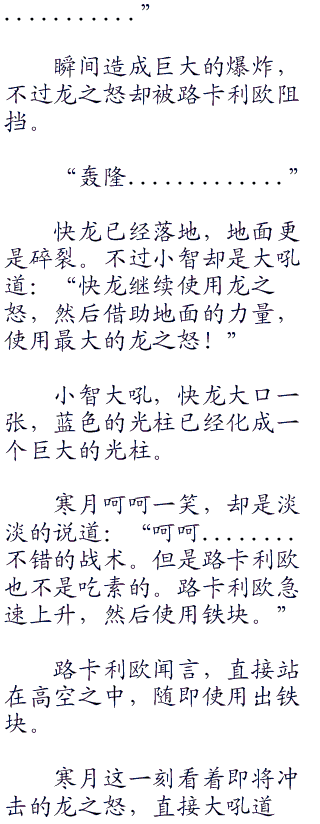 ...........”
瞬间造成巨大的爆炸，
不过龙之怒却被路卡利欧阻
挡。
“轰隆.............”
快龙已经落地，地面更
是碎裂。不过小智却是大吼
道：“快龙继续使用龙之
怒，然后借助地面的力量，
使用最大的龙之怒！”
小智大吼，快龙大口一
张，蓝色的光柱已经化成一
个巨大的光柱。
寒月呵呵一笑，却是淡
淡的说道：“呵呵........
不错的战术。但是路卡利欧
也不是吃素的。路卡利欧急
速上升，然后使用铁块。”
路卡利欧闻言，直接站
在高空之中，随即使用出铁
块。
寒月这一刻看着即将冲
击的龙之怒，直接大吼道